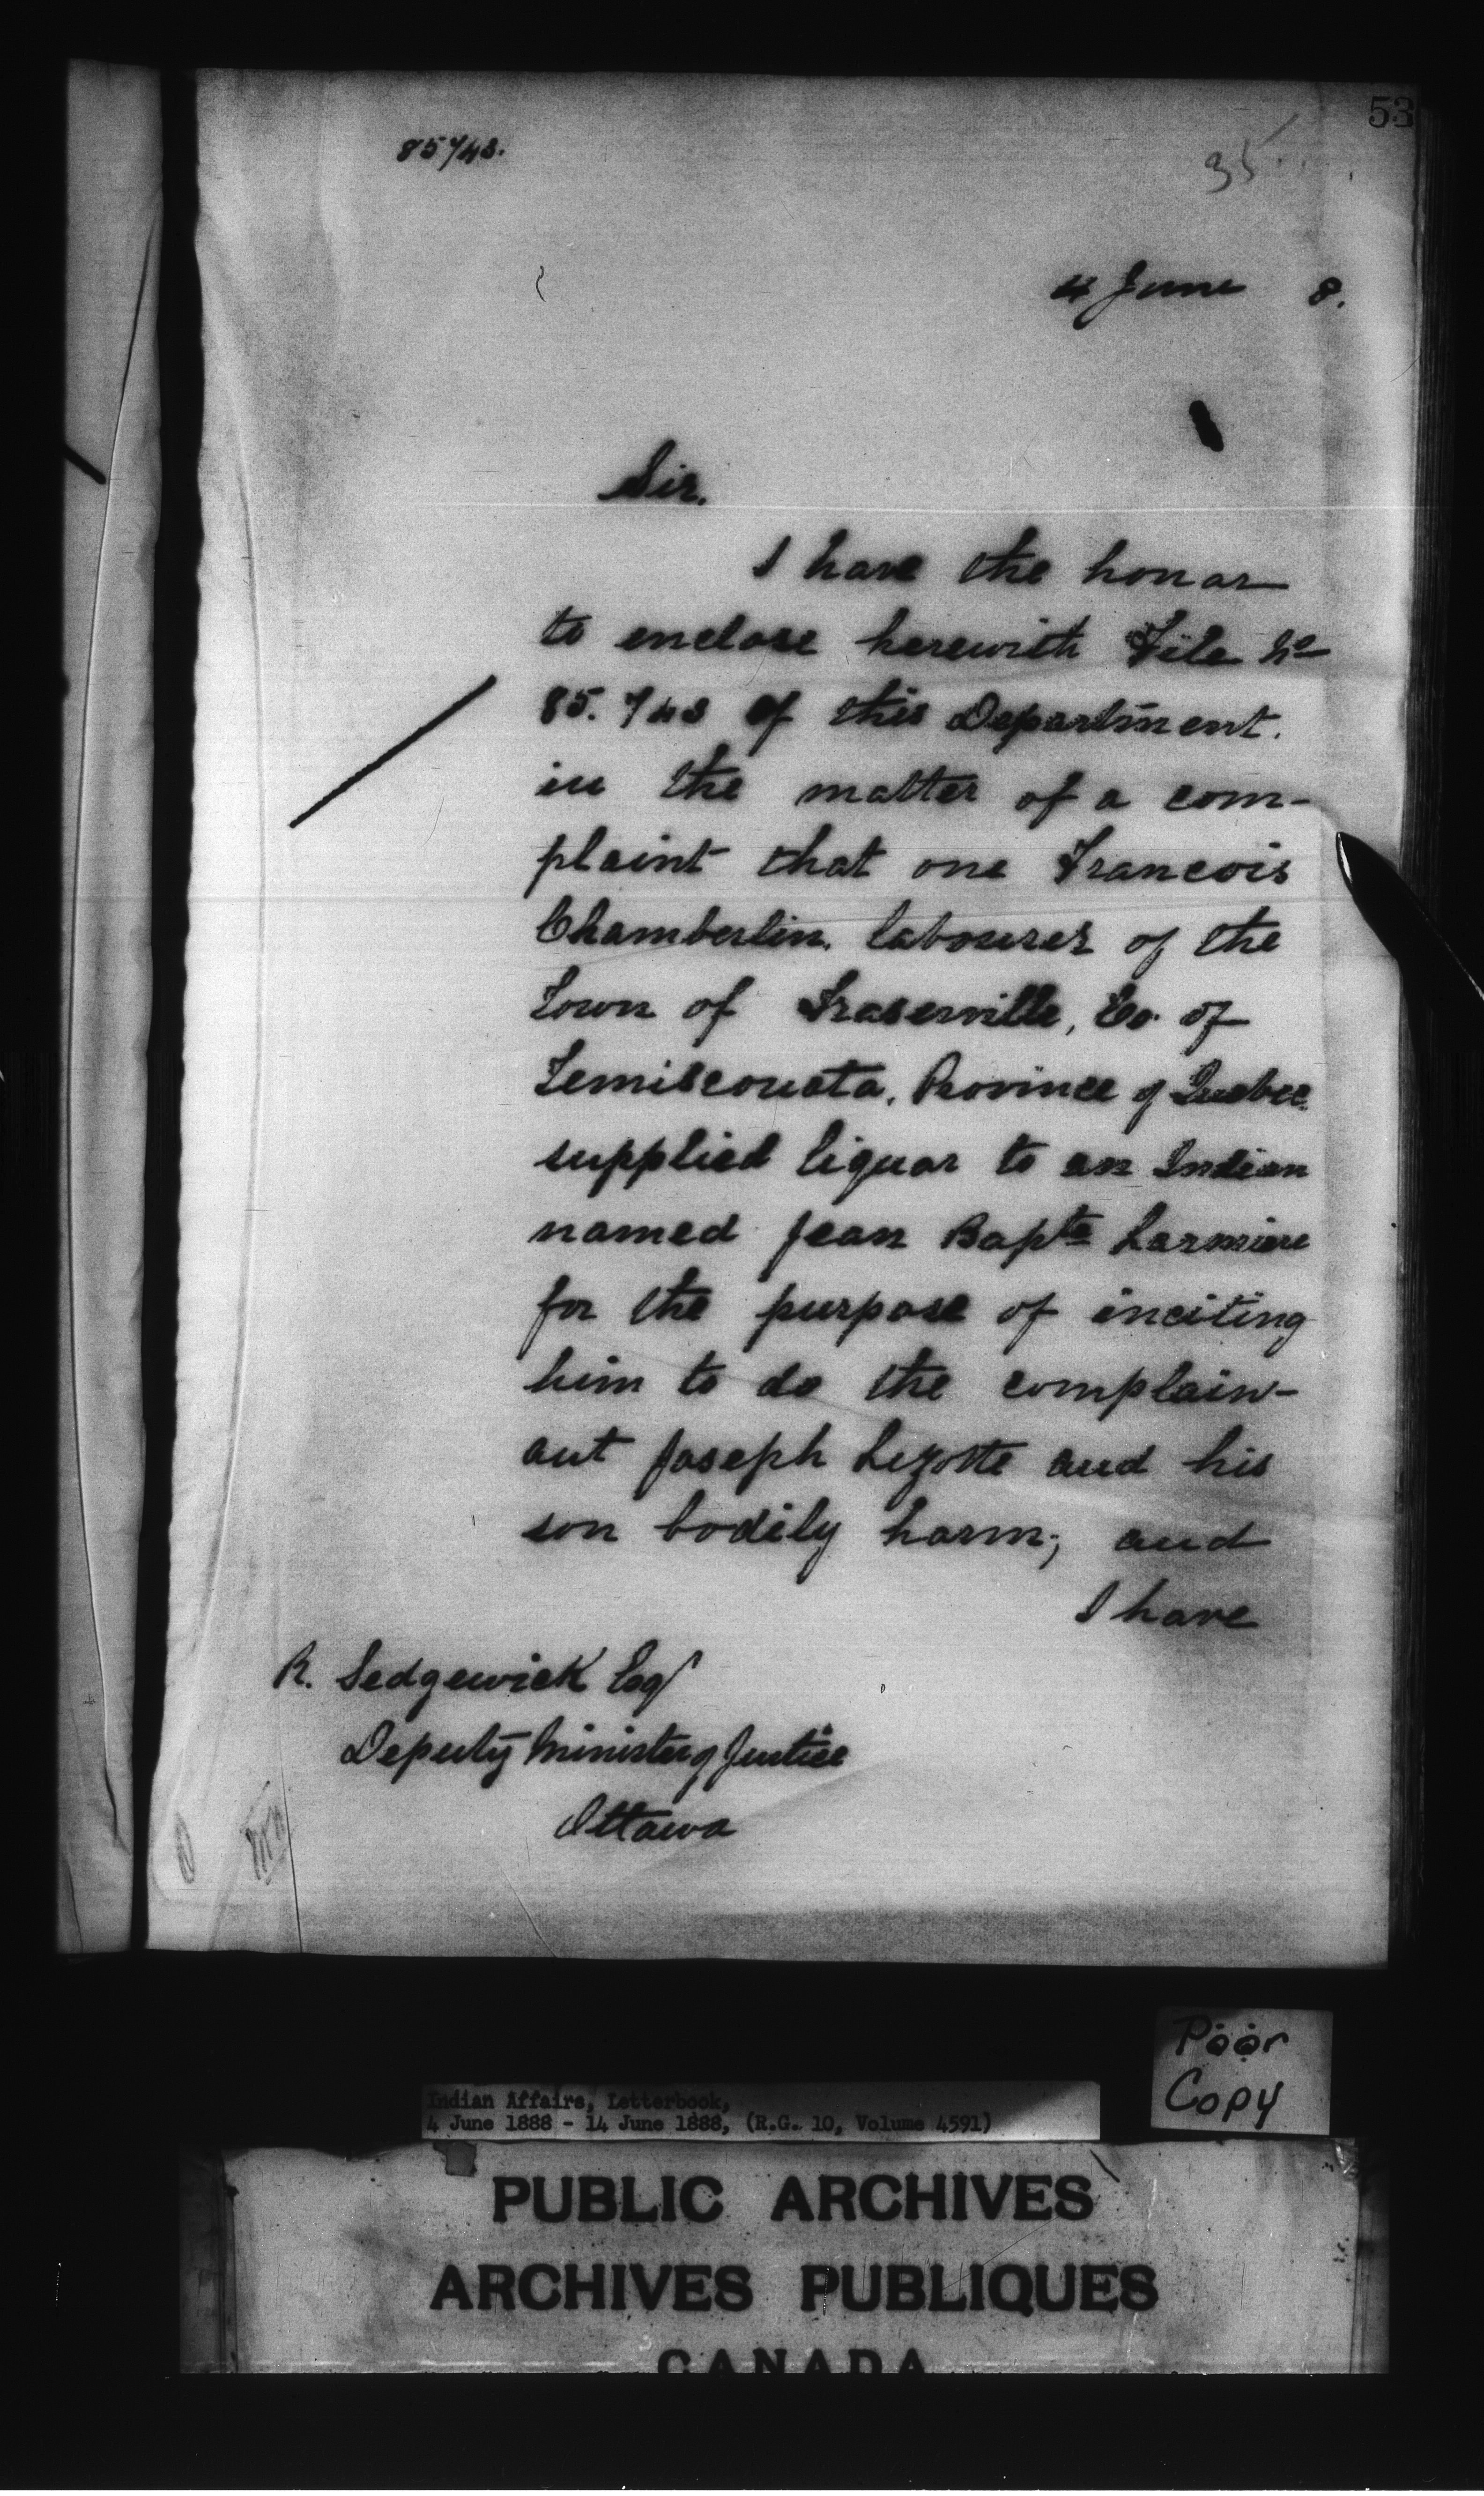 53
85743.
35
4 June 8.
Sir.
I have the honor
to enclose herewith File No
85.743 of this Department.
in the matter of a com-
plaint that one Francois
Chamberlin. labourer of the
Town of Fraserville, Co. of
Temiscouata, Province of Quebec.
supplied liquor to an Indian
named Jean Bapte
for the purpose of inciting
him to do the complain-
ant Joseph Lizotte and his
son bodily harm; and
I have
R. Sedgewick Esq
Deputy Minister of Justice
Ottawa
Poor
Copy
Indian Affairs, Letterbook,
4 June 1888 - 14 June 1888, (R.G. 10, Volume 4591)
PUBLIC ARCHIVES
ARCHIVES PUBLIQUES
CANADA